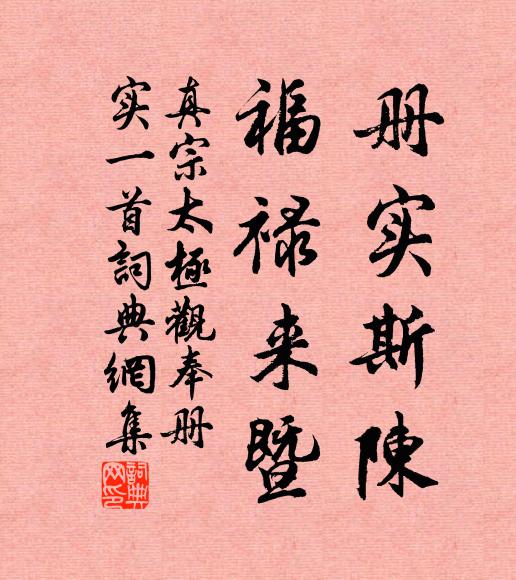 册实斯陳
福禄来暨
真宗太極觀奉册
实一首詞典網集
詞典网印